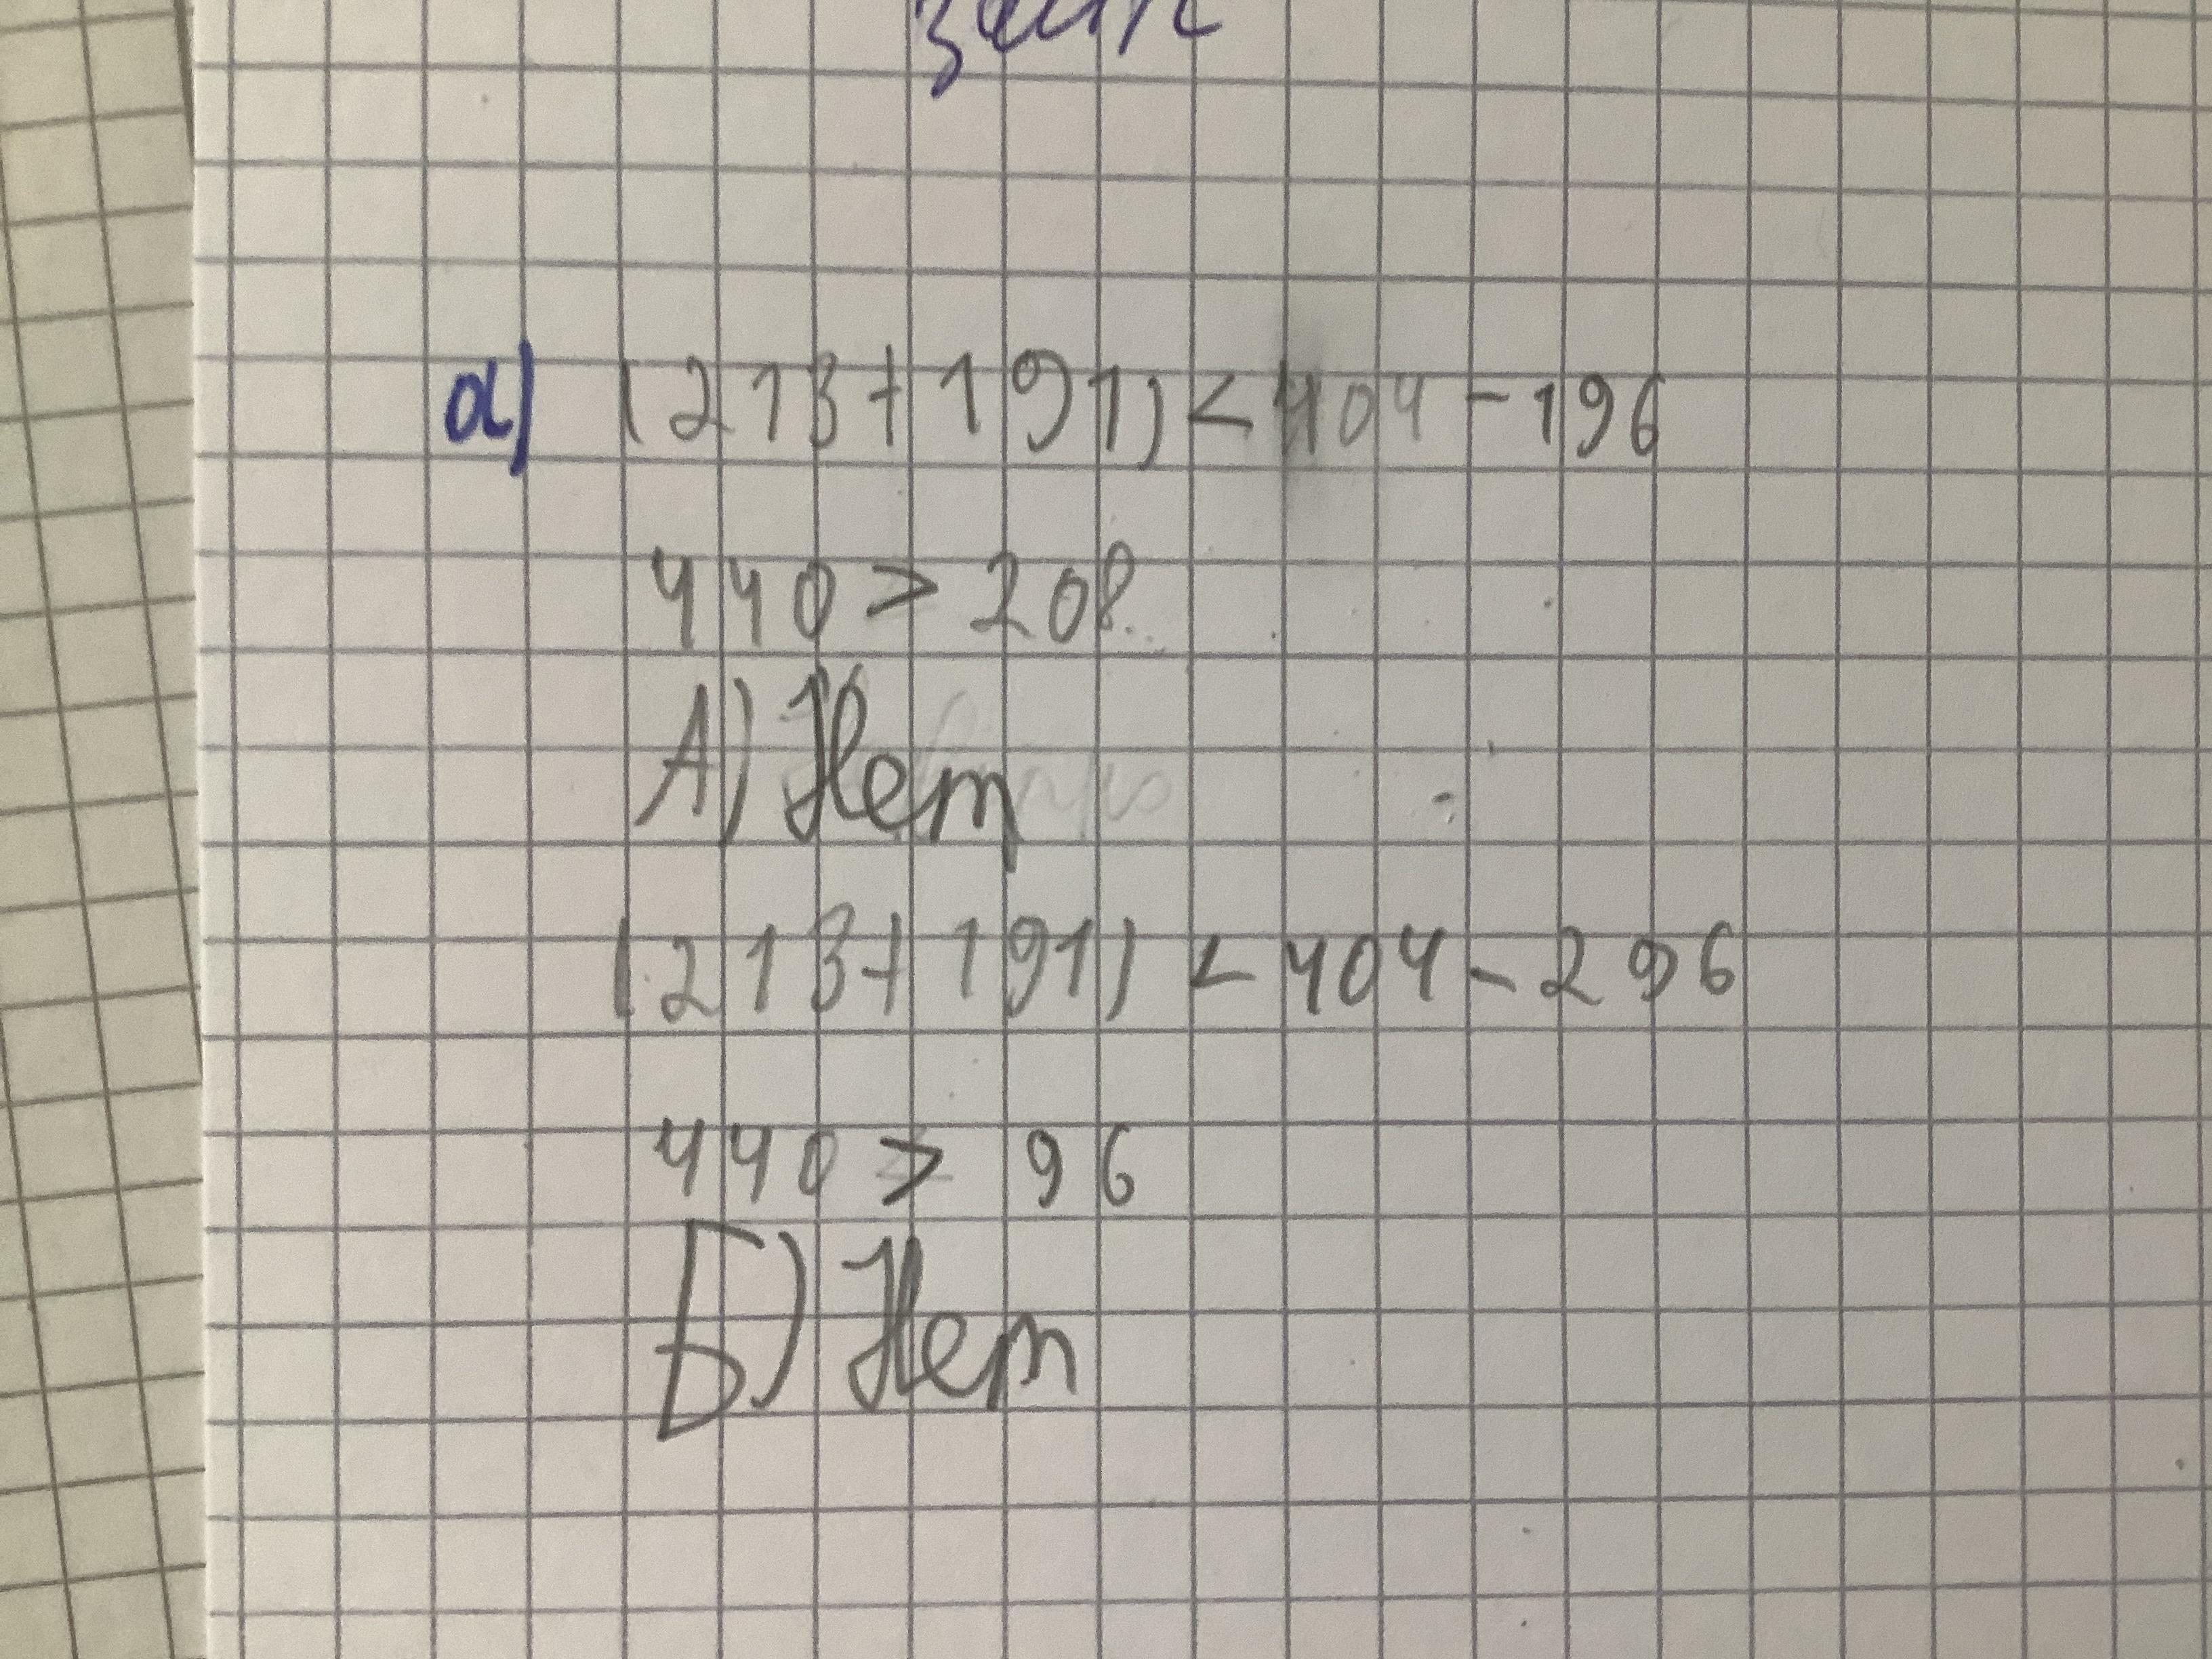 а) (213+191)<404-196
440>208
А) Нет
(213+191)<404-296
440>96
Б) Нет